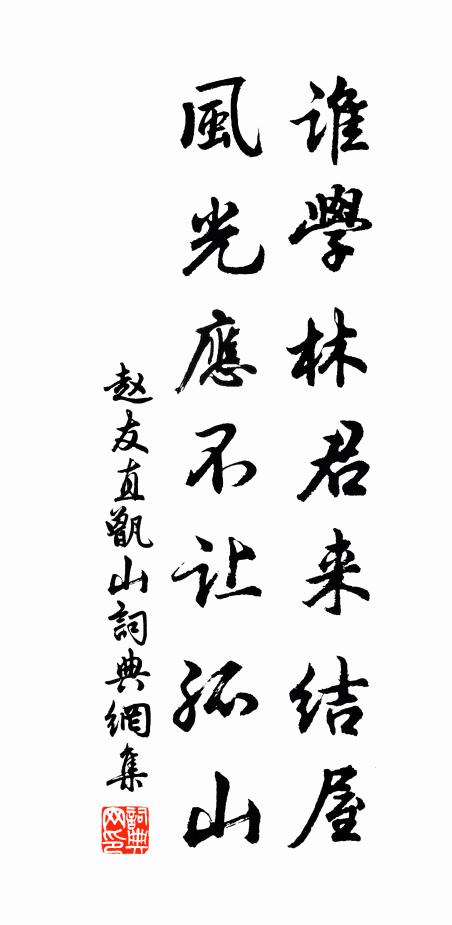 誰學林君来结屋
風光應不让孤山
赵友直甑山詞典網集
詞典网印